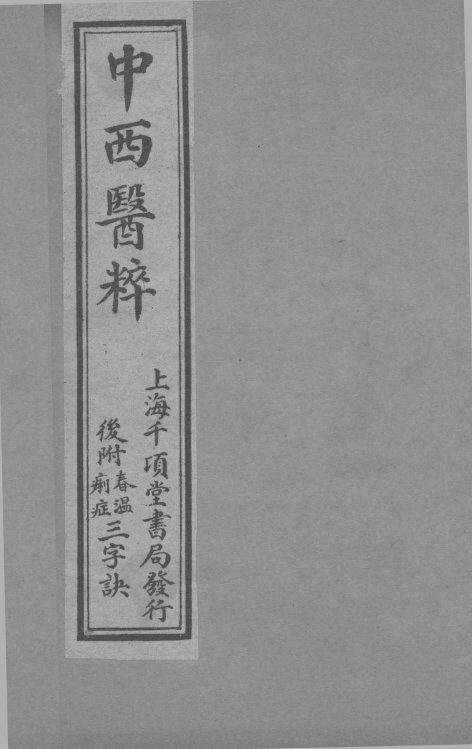 中西醫粹
上海千頃堂書局發行
後附春温痢症三字訣